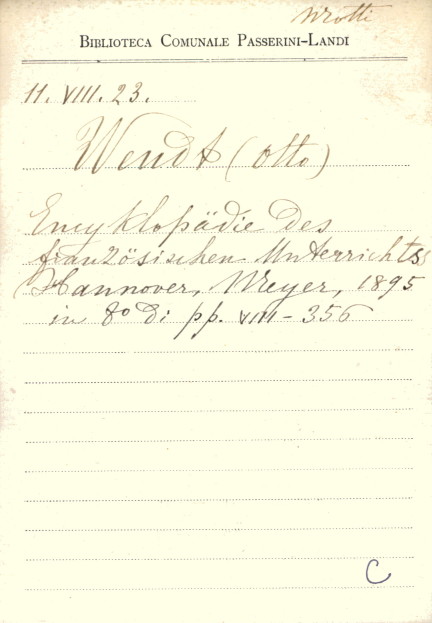 BIBLIOTECA COMUNALE PASSERINI-LANDI
11. VIII. 23.
Wendt (Otto)
Encyklopädie des
französischen Unterrichts
Hannover, Meyer, 1895
in 8º di pp. VIII - 356
C